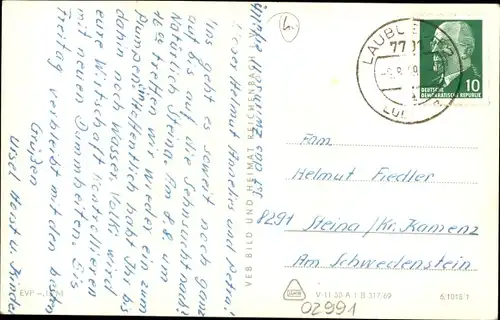 Lieber Helmut Hanelis und Petra!
Uns geht es soweit noch ganz
gut bis auf die Sehnsucht nach
Natürlich Steina. Am 8.8. um
16 00 treffen wir wieder ein zum
Pumpen. Hoffentlich habt Ihr bis
dahin noch Wasser. Volki wird
eure Wirtschaft kontrollieren
mit neuen Dummheiten. Bis
Freitag verbleibt mit den besten
Grüßen
Ursel Horst u. Kinder
VEB BILD UND HEIMAT REICHENBACH
LAUBU
7701
DEUTSCHE
DEMOKRATISCHE REPUBLIK
10
Fam
Helmut Fiedler
8291 Steina /Kr. Kamenz
Am Schwedenstein
V 11 30 A 1 B 317/69
02991